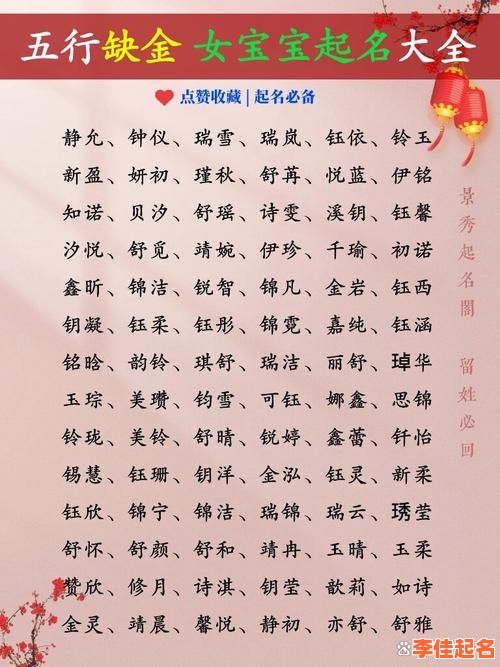 五行缺金 女宝宝起名大全
点赞收藏 | 起名必备
静允、钟仪、瑞雪、瑞岚、钰依、铃玉
新盈、妍初、瑾秋、舒苒、悦蓝、伊铭
知诺、贝汐、舒瑶、诗雯、溪钥、钰馨
汐悦、舒觅、靖婉、伊珍、千瑜、初诺
鑫昕、锦洁、锐智、锦凡、金岩、钰西
钥凝、钰柔、钰彤、锦霓、嘉纯、钰涵
铭晗、韵铃、琪舒、瑞洁、丽舒、琸华
玉琮、美瓒、钧雪、可钰、娜鑫、思锦
铃珑、美铃、舒晴、锐婷、鑫蕾、钎怡
锡慧、钰珊、钥洋、金泓、钰灵、新柔
钰欣、锦宁、锦洁、瑞锦、瑞云、琇莹
舒怀、舒颜、舒和、靖冉、玉晴、玉柔
赞欣、修月、诗淇、钥莹、歆莉、如诗
金灵、靖晨、馨悦、静初、亦舒、舒雅
景秀起名閣 留姓必回
李佳起名